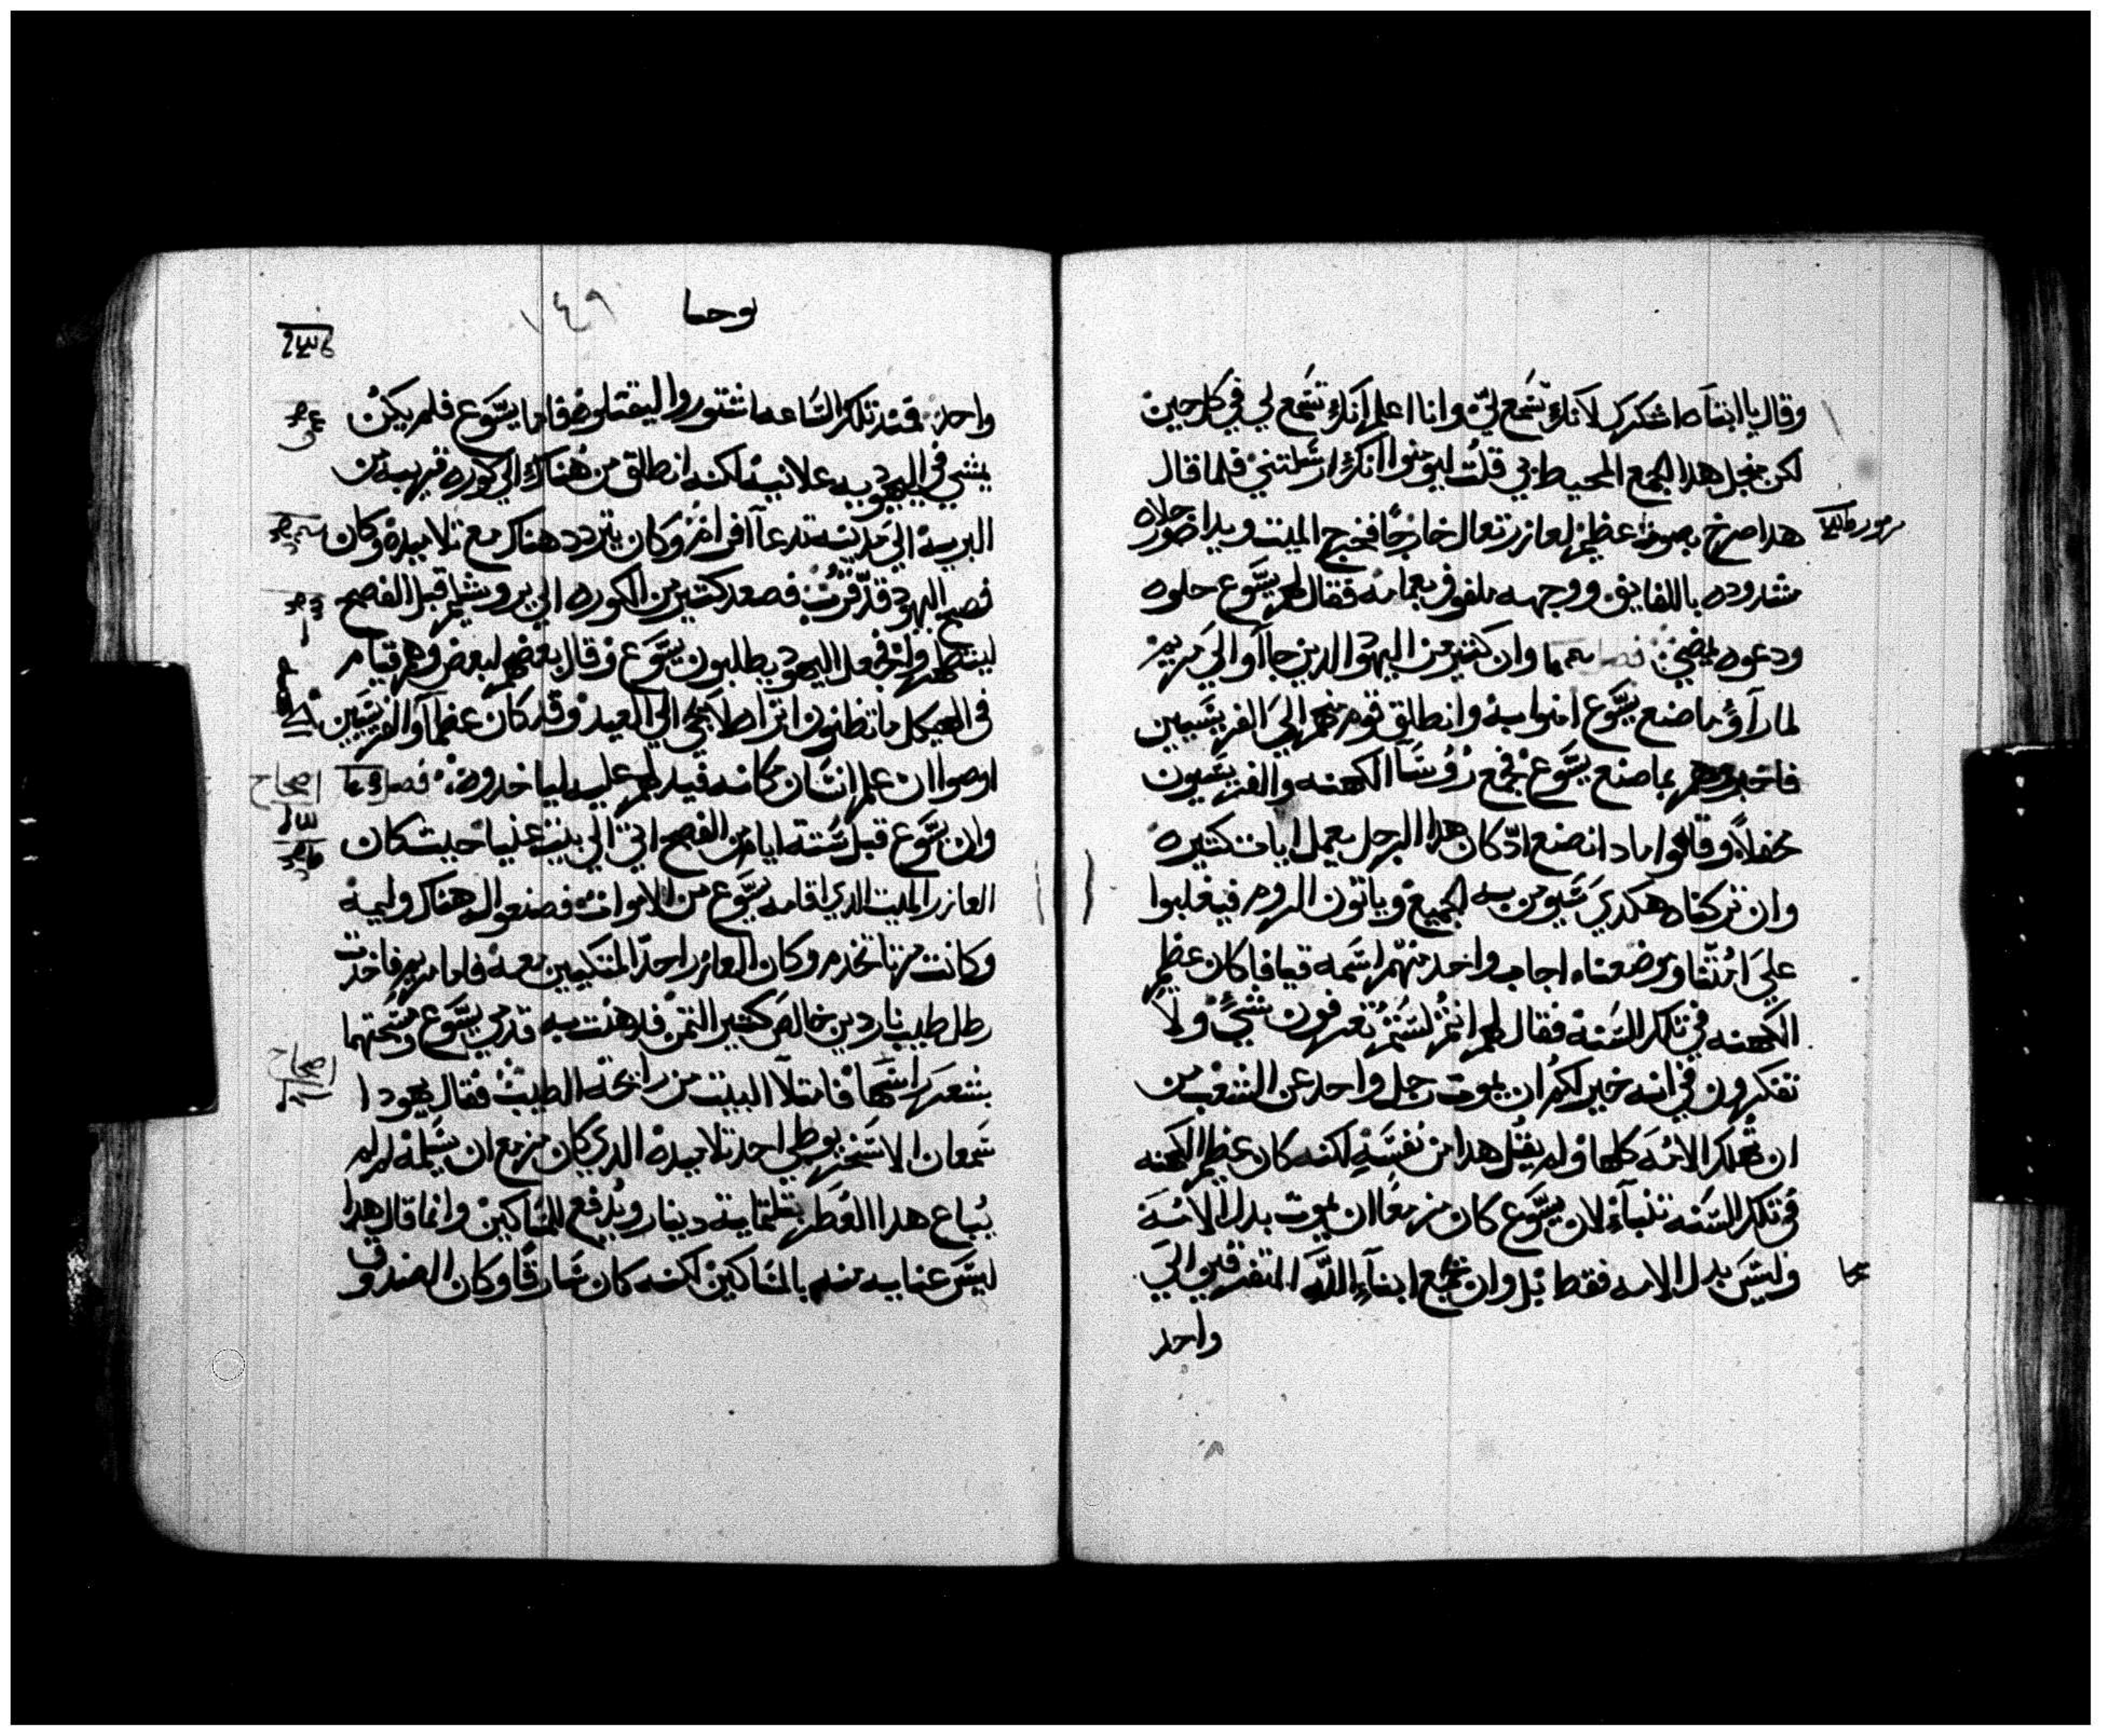 وقال يا ابتاه اشكرك لانك تسمع لي وانا اعلم انك تسمع لي في كل حين
لكن منجل هدا الجمع المحيط بي قلت ليومنوا انك ارسلتني فلما قال
هدا صرخ بصوت عظيم لعازر تعال خارجًا فخرج الميت ويداه ورجلاه
مشدوده باللفايف ووجهه ملفوف بعمامه فقال لهم يسوع حلوه
ودعوه يمضي وان كتير من اليهود الدين جاآوا الي مريم
لما رآوا ما صنع يسوع امنوا به وانطلق قوم منهم الي الفريسيين
فاخبروهم بما صنع يسوع فجمع روسا الكهنه والفريسيون
محفلاً وقالوا مادا نصنع اد كان هدا الرجل يعمل ايات كتيره
وان تركناه هكدي سيومن به الجميع وياتون الروم فيغلبوا
علي امتنا وموضعنا اجاب واحد منهم اسمه قيافا كان عظيم
الكهنه في تلك السنه فقال لهم انتم لستم تعرفون شي ولا
تفكرون في انه خير لكم ان يموت رجل واحد عن الشعب من
ان تهلك الامه كلها ولم يقل هدا من نفسه لكنه كان عظيم الكهنه
في تلك السنه تنباء لان يسوع كان مزمعًا ان يموت بدل الامه
وليس بدل الامه فقط بل وان يجمع ابنآء الله المتفرقين الي
واحد
يوحنا ١٤٩
واحد فمند تلك الساعه اشتوروا ليقتلوه فاما يسوع فلم يكن
يمشي في اليهوديه علانيه لكنه انطلق من هناك الي كوره قريبه من
البريه الي مدينه تدعآ افرام وكان يتردد هناك مع تلاميده وكان
فصح اليهود قد قرب فصعد كتير من الكوره الي يروشليم قبل الفصح
ليتطهروا فجعل اليهود يطلبون يسوع وقال بعضهم لبعض وهم قيام
في الهيكل ما تظنون اتراه لا يجي الي العيد وقد كان عظمآ والفريسيين
اوصوا ان علم انسان مكانه فيدلهم عليه لياخدوه فصل
وان يسوع قبل سته ايام من الفصح اتي الي بيت عنيا حيث كان
العازر الميت الدي اقامه يسوع من الاموات فصنعوا له هناك وليمه
وكانت مرتا تخدم وكان العازر احد المتكيين معه فاما مريم فاخدت
رطل طيب ناردين خالص كتير التمن فدهنت به قدمي يسوع ومسحتهما
بشعر راسها فامتلا البيت من رايحه الطيب فقال يهودا
سمعان الاسخريوطي احد تلاميده الدي كان مزمع ان يسلمه لم لم
يباع هدا العطر بتلتمايه دينار ويدفع للمساكين وانما قال هدا
ليس عنايه منه بالمساكين لكنه كان سارقًا وكان الصندوق
اصحاح
اصحاح